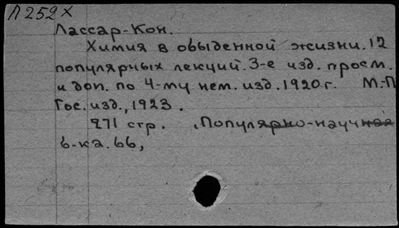 Л252х
Лассар-Кон.
Химия в обыденной жизни. 12
популярных лекций. 3-е изд. просм.
и доп. по 4-му нем. изд. 1920 г. М.-П
Гос. изд., 1923.
271 стр. Популярно-научная
б-ка. 66,